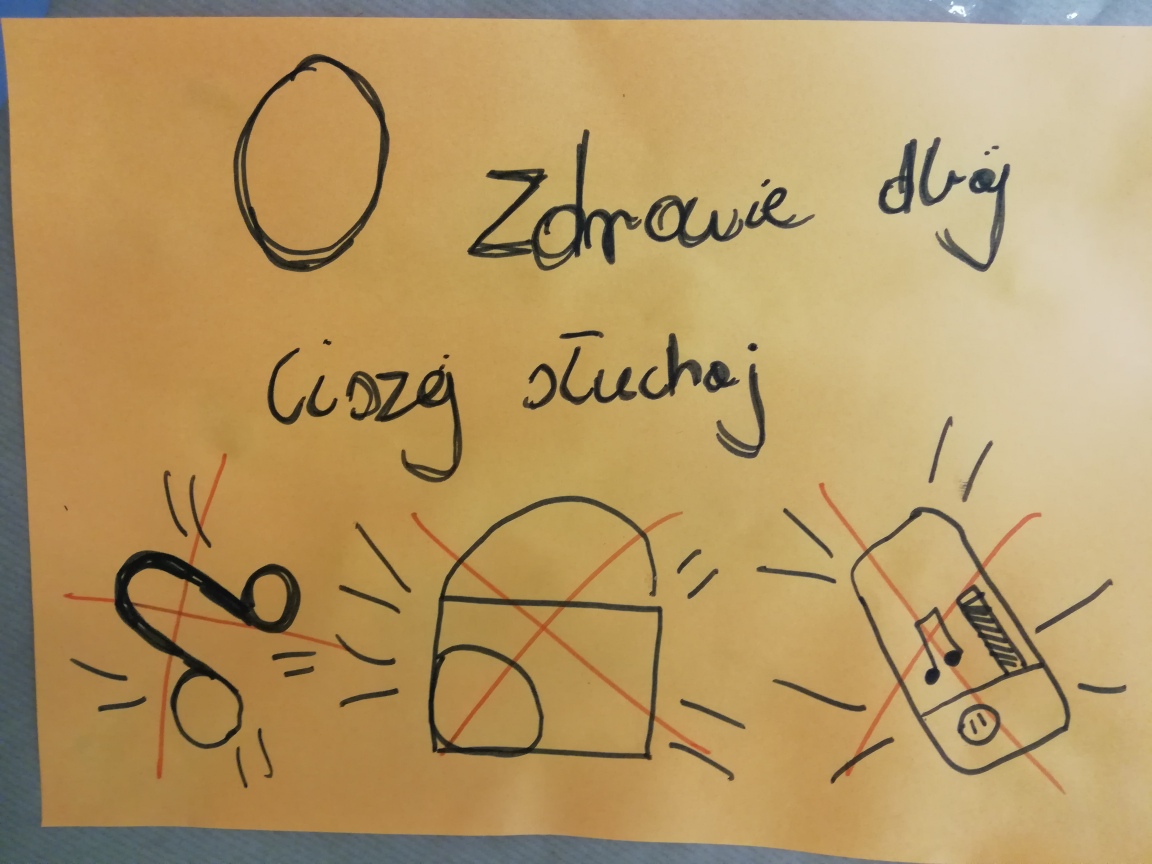 O Zdrowie dbaj
Ciszej słuchaj